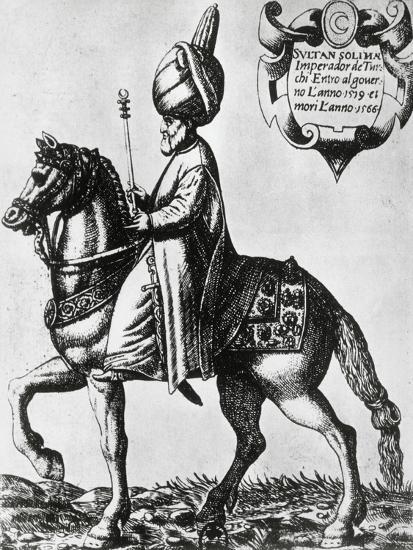 SVLTAN SOLIMA
Imperador de Tur⸗
chi Entro al gouer⸗
no L'anno 1519 et
mori L'anno 1566